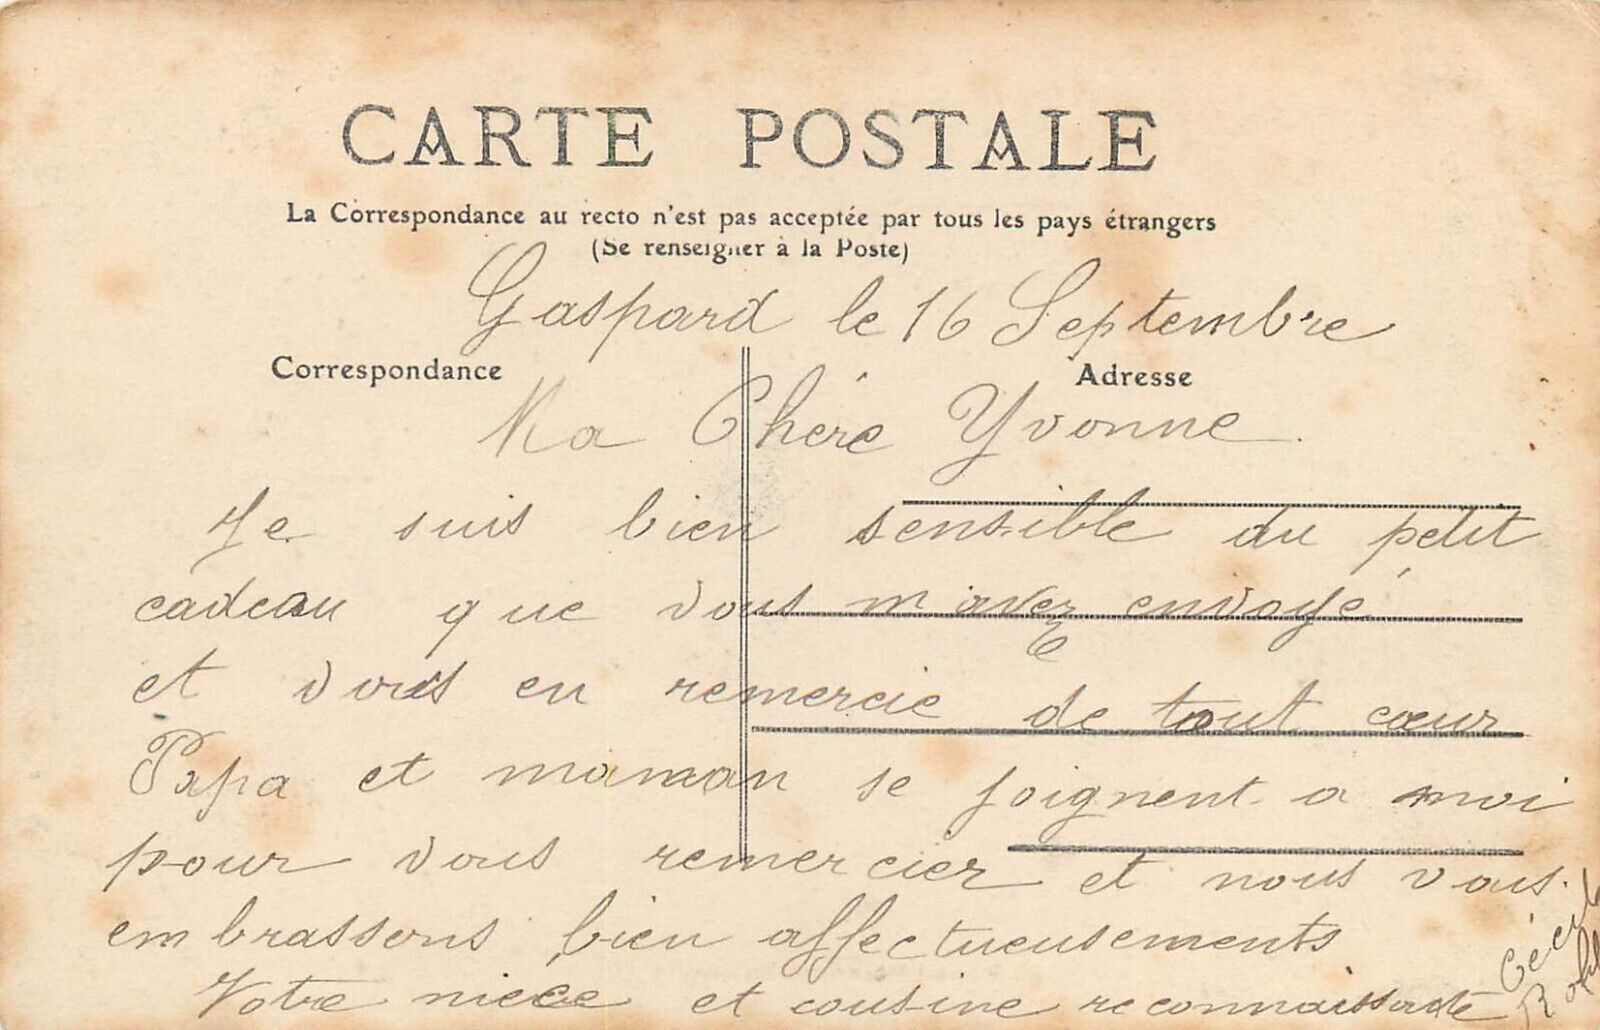 CARTE POSTALE
La Correspondance au recto n'est pas acceptée par tous les pays étrangers
(Se renseigner à la Poste)
Gaspard le 16 Septembre
Correspondance
Adresse
Ma Chére Yvonne.
Je suis bien sensible du petit
cadeau que vous m'avez envoyé
et vous en remercie de tout cœur
Papa et maman se joignent a moi
pour vous remercier et nous vous
embrassons bien affectueusements
Votre niece et cousine reconnaissante